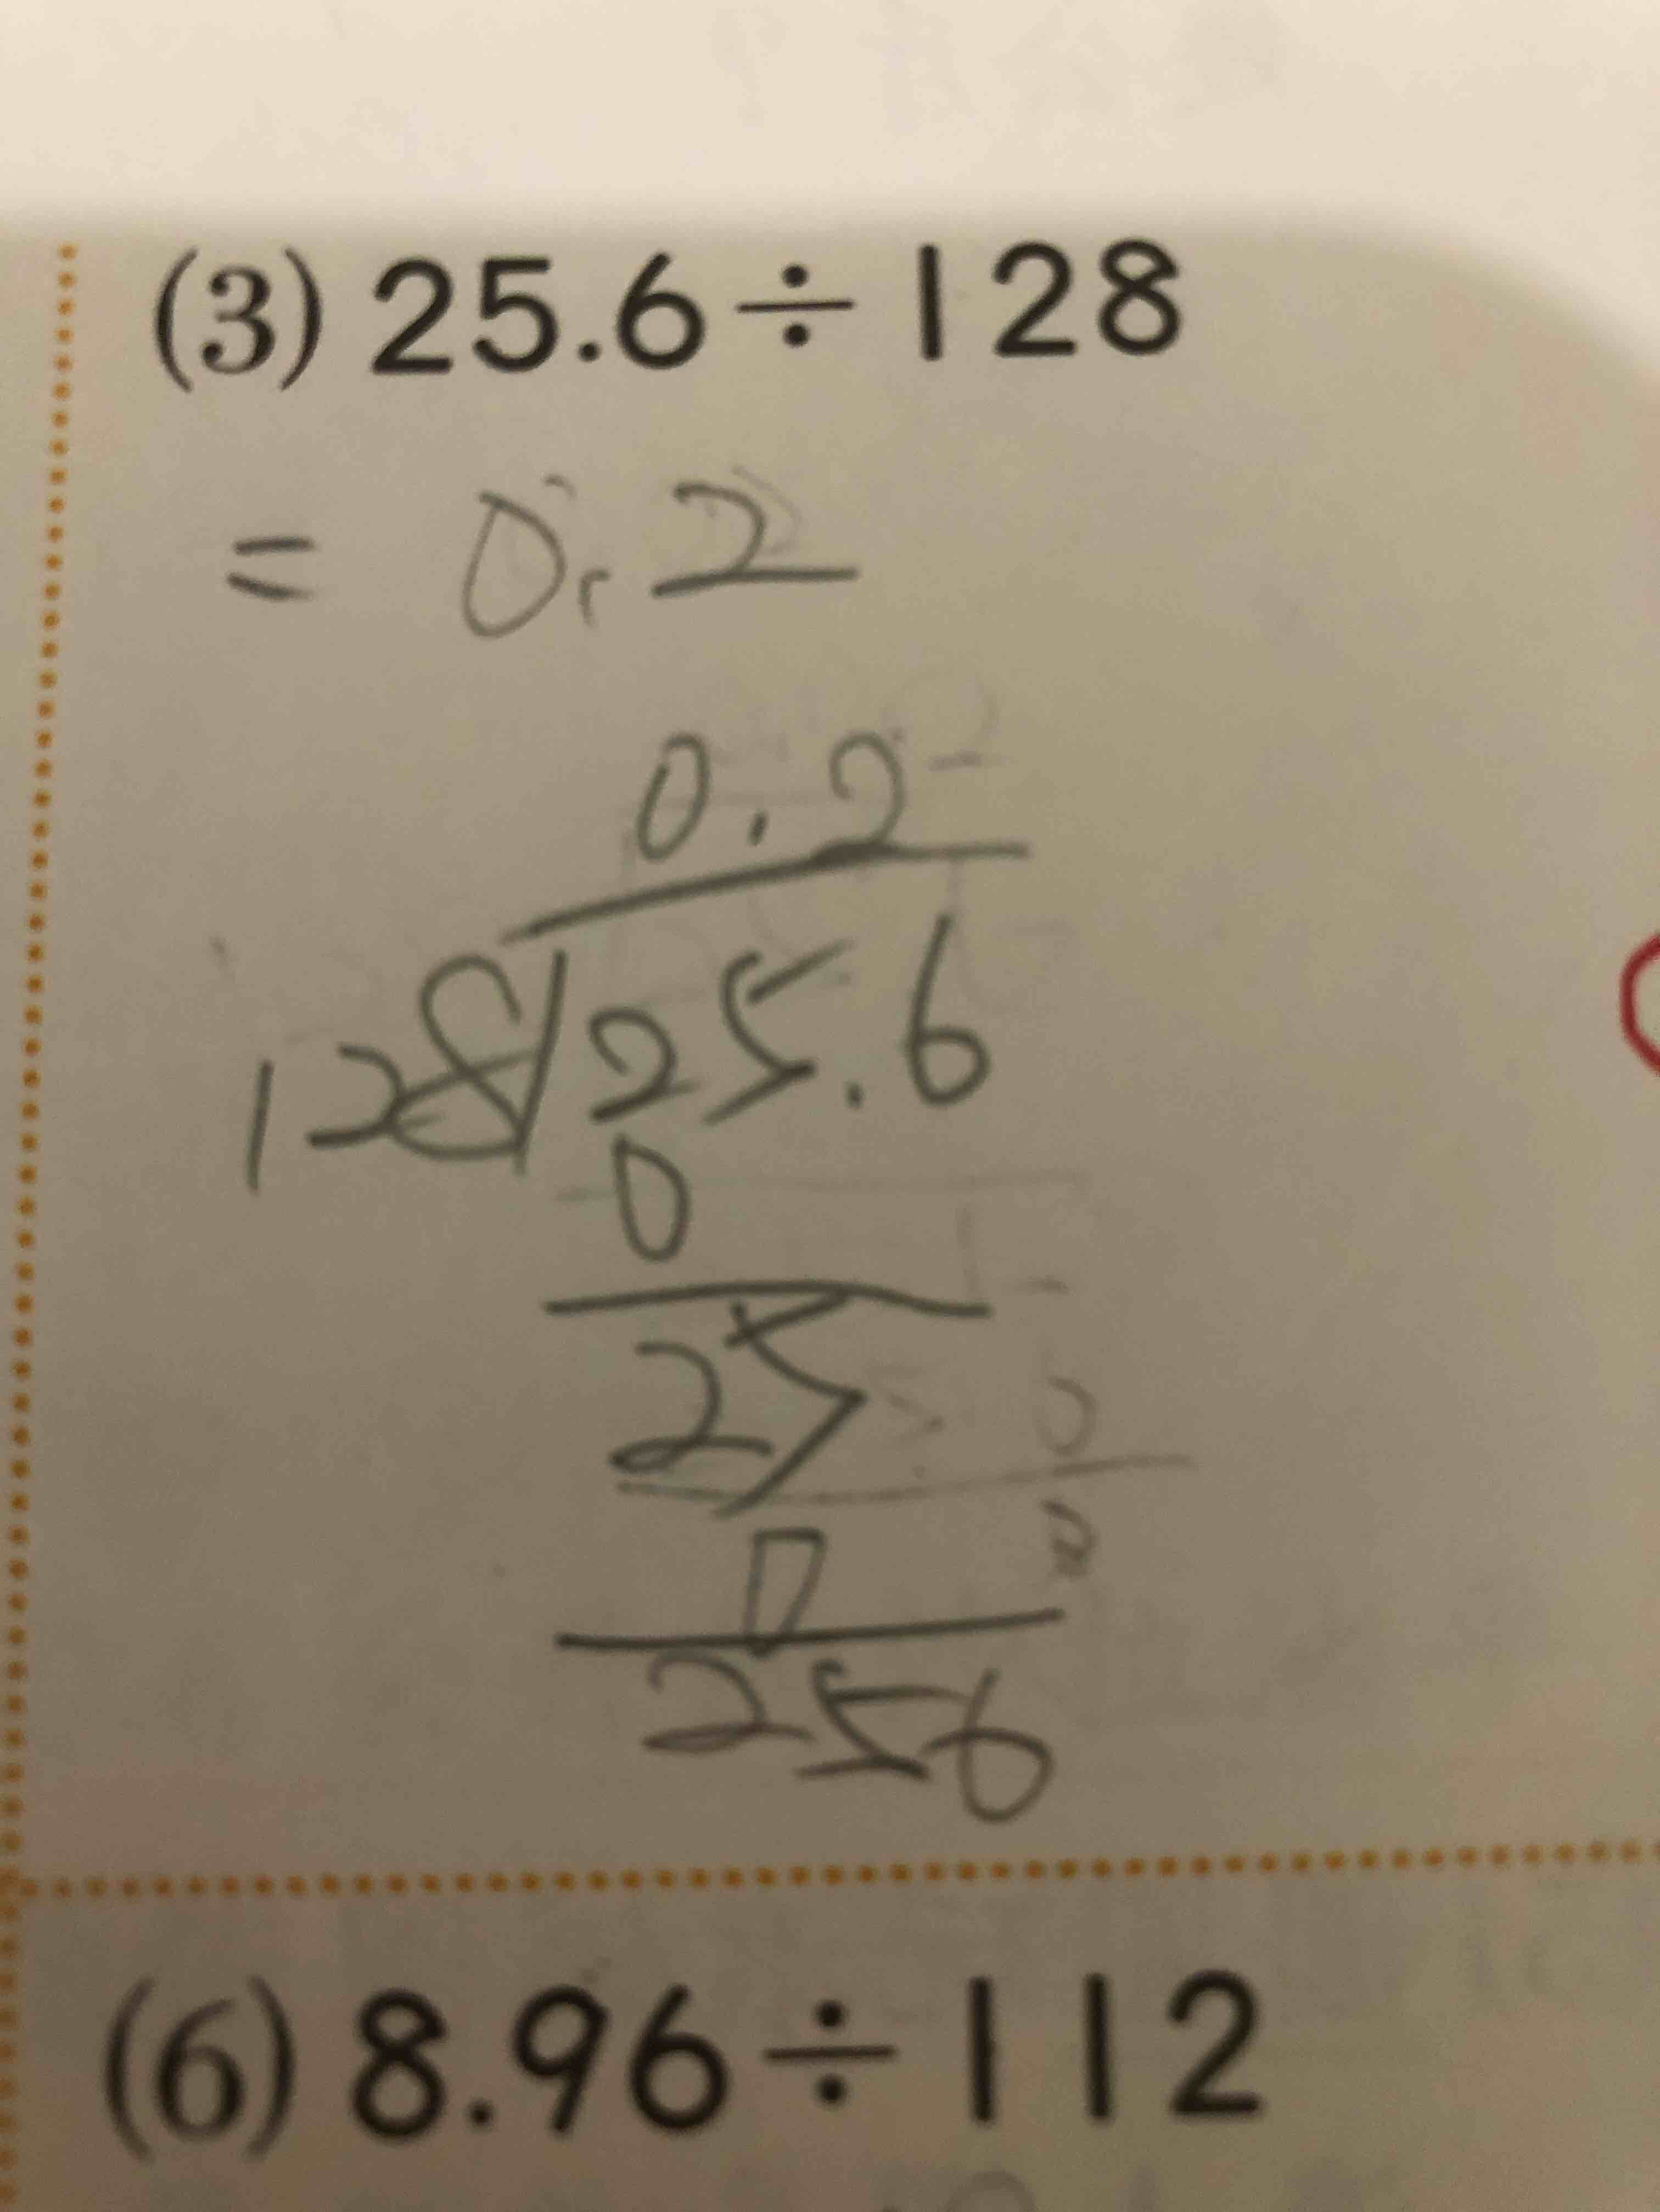 (3) 25.6÷128
= 0.2
0.2
128 25.6
0
25
0
256
(6) 8.96÷112